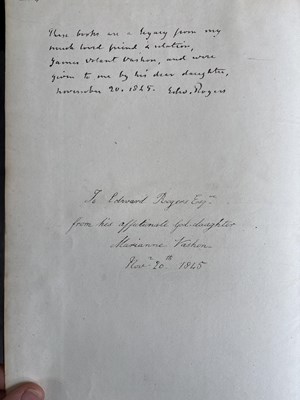 These books are a legacy from my
much loved friend & relation,
James Volant Vashon, and were
given to me by his dear daughter,
November 20. 1845. Edw. Rogers
To Edward Rogers Esqr.
from his affectionate God daughter
Marianne Vashon
Novr. 20th 1845